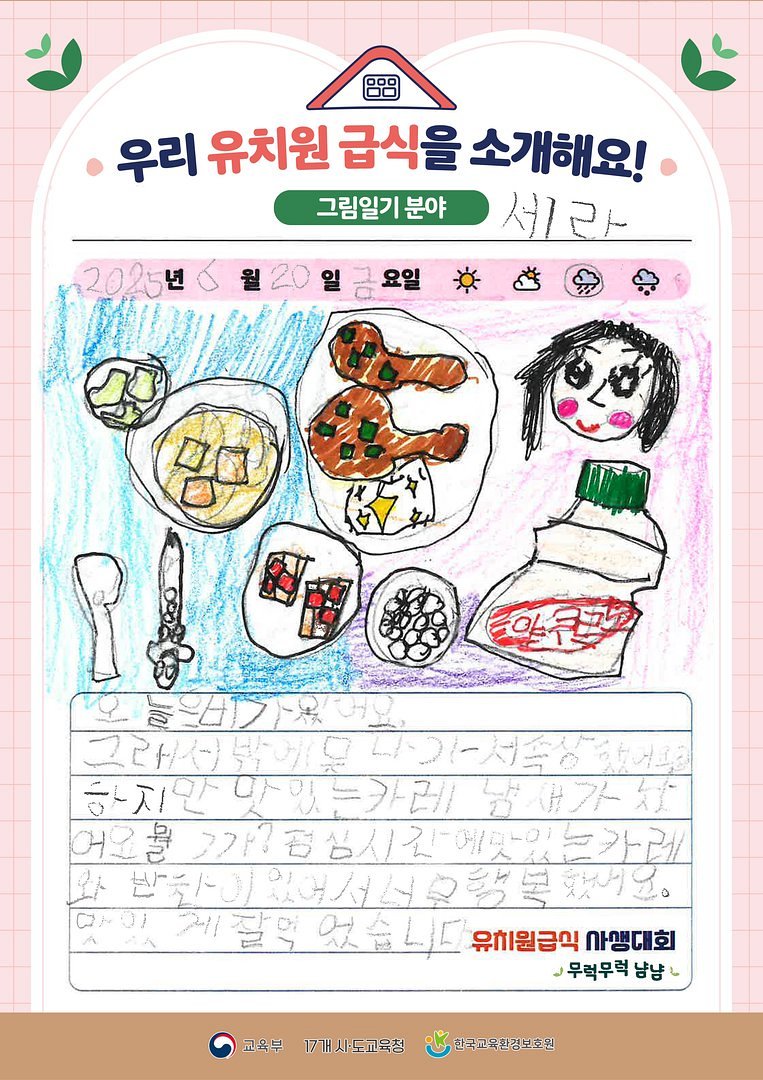 우리 유치원 급식을 소개해요!
그림일기 분야
세라
2025년 6월 20일 금요일
야쿠르
오늘은비가왔어요.
그래서밖에못 나가서속상했어요
하지만 맛있는카레 냄새가 났
어요뭘까? 점심시간에맛있는카레
와 반찬이있어서너무행복했어요.
맛있게잘먹었습니다
유치원급식 사생대회
무럭무럭 냠냠
교육부 17개 시·도교육청 한국교육환경보호원